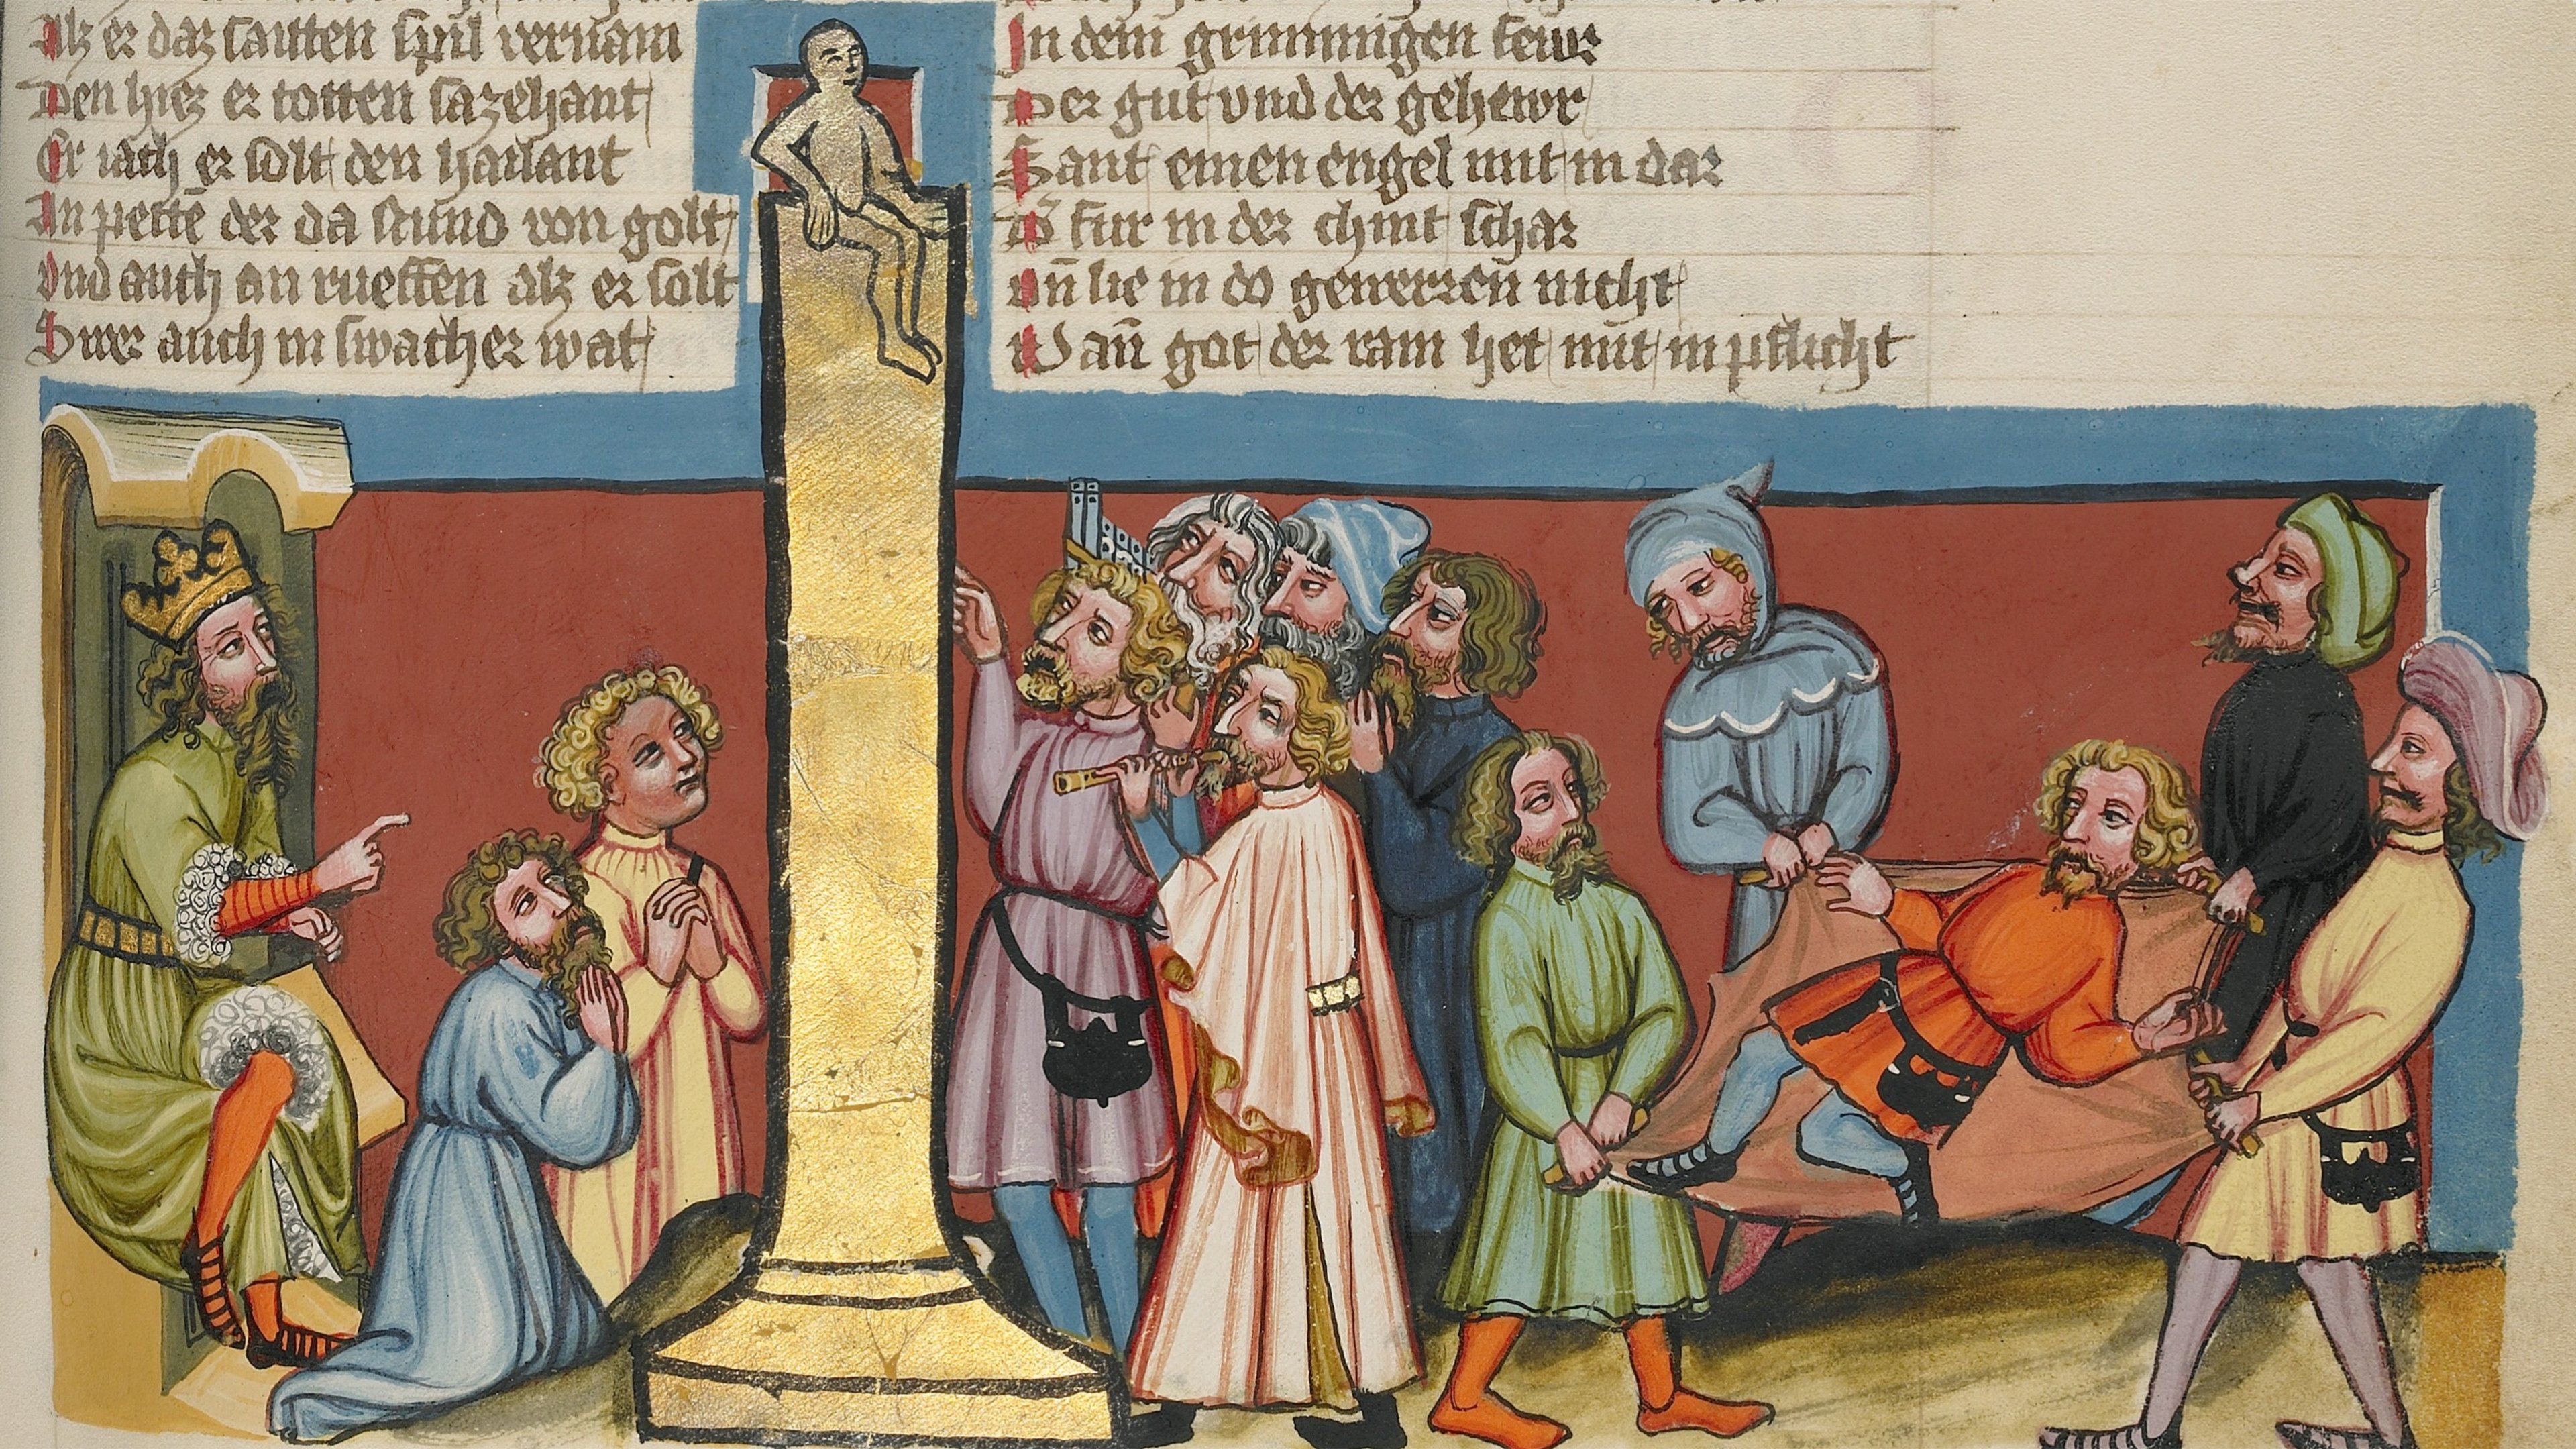 Alz er daz saitten spil vernam
Den hiez er totten sazehant
Er iach er solt den hailant
An pettē der da stund von golt
Vnd auch an rueffen alz er solt
Swer auch in swacher wat
In dem grimmigen fewr
Der gut vnd der gehewr
Sant einen engel mit in dar
Der fur in der chint schar
Vn̄ lie in do gewerren nicht
Wan̄ got der ram het mit in pflicht